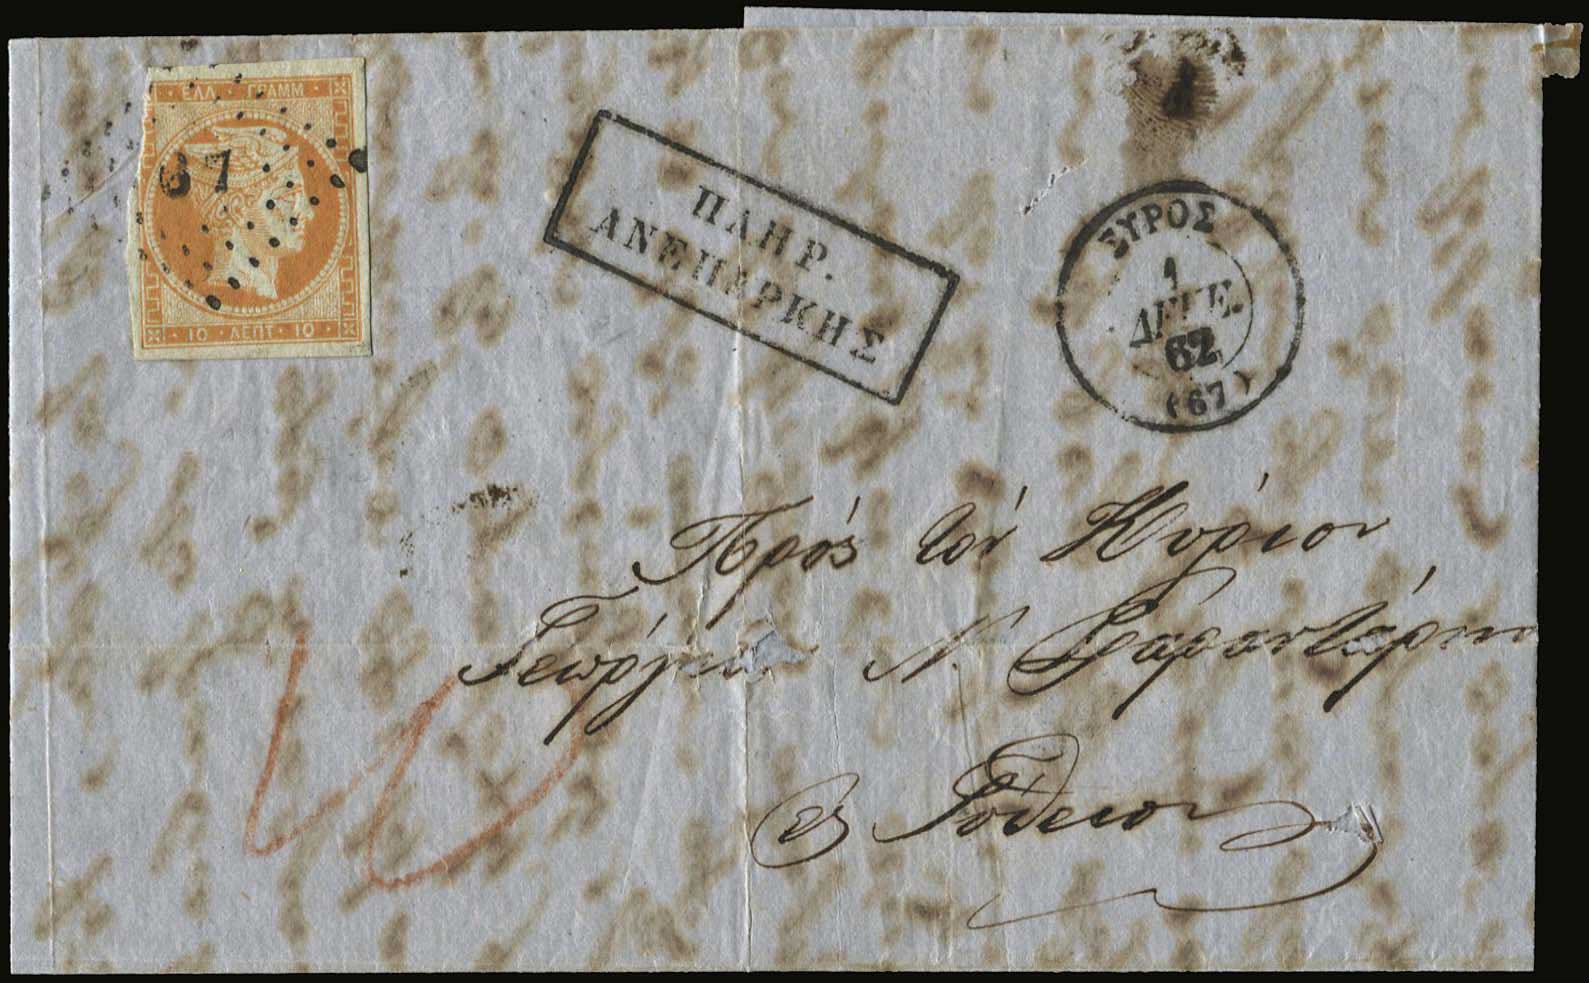 ΕΛΛ · ΓΡΑΜΜ
67
10 · ΛΕΠΤ · 10
ΠΛΗΡ.
ΑΝΕΠΑΡΚΗΣ
ΣΥΡΟΣ
1
ΔΕΚΕ.
62
(67)
Πρός τόν Κύριον
Γεώργιον Ν.